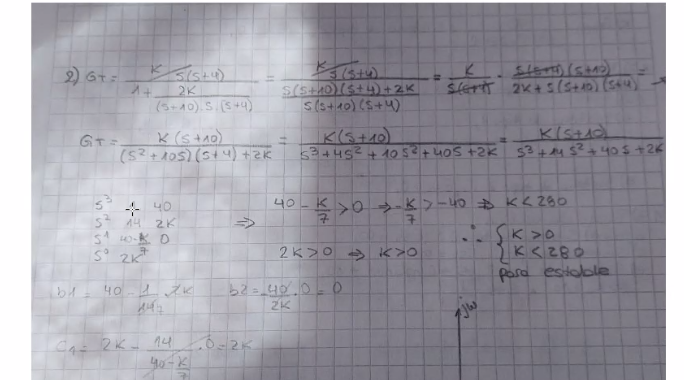 2) GT = K/S(S+4) / 1 + 2K/(S+10).S.(S+4) = K/S(S+4) / S(S+10)(S+4)+2K/S(S+10)(S+4) = K/S(S+4) . S(S+4)(S+10)/2K+S(S+10)(S+4) = →
GT = K(S+10)/(S²+10S)(S+4)+2K = K(S+10)/S³+4S²+10S²+40S+2K = K(S+10)/S³+14S²+40S+2K
S³ 1 40
40 - K/7 > 0 ⇒ -K/7 > -40 ⇒ K < 280
S² 14 2K ⇒
S¹ 40-K/7 0
∴ { K > 0
S⁰ 2K
2K > 0 ⇒ K > 0
K < 280
para estable
b1 = 40 - 1/14 7 . 2K b2 = 40/2K . 0 = 0
jω
C1 = 2K - 14/40-K/7 . 0 = 2K